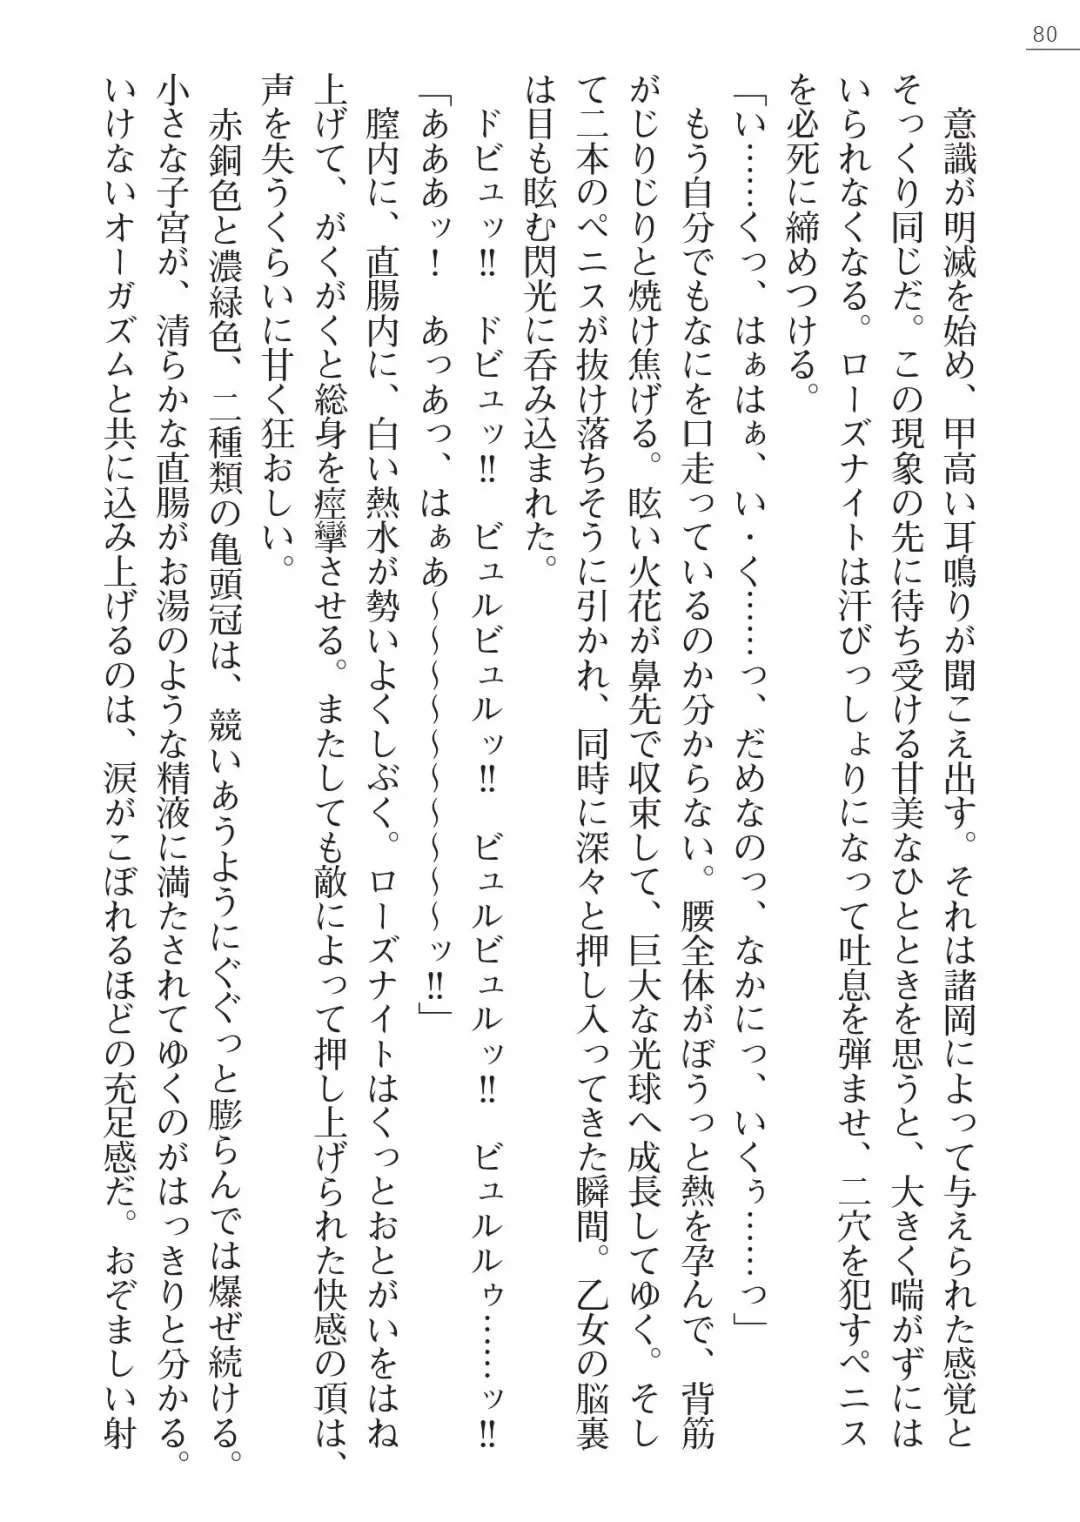 80
意識が明滅を始め、甲高い耳鳴りが聞こえ出す。それは諸岡によって与えられた感覚と
そっくり同じだ。この現象の先に待ち受ける甘美なひとときを思うと、大きく喘がずには
いられなくなる。ローズナイトは汗びっしょりになって吐息を弾ませ、二穴を犯すペニス
を必死に締めつける。
「い……くっ、はぁはぁ、い・く……っ、だめなのっ、なかにっ、いくぅ……っ」
もう自分でもなにを口走っているのか分からない。腰全体がぼうっと熱を孕んで、背筋
がじりじりと焼け焦げる。眩い火花が鼻先で収束して、巨大な光球へ成長してゆく。そし
て二本のペニスが抜け落ちそうに引かれ、同時に深々と押し入ってきた瞬間。乙女の脳裏
は目も眩む閃光に呑み込まれた。
ドビュッ‼　ドビュッ‼　ビュルビュルッ‼　ビュルビュルッ‼　ビュルルゥ……ッ‼
「あああッ！　あっあっ、はぁあ～～～～～～～～～～ッ‼」
膣内に、直腸内に、白い熱水が勢いよくしぶく。ローズナイトはくっとおとがいをはね
上げて、がくがくと総身を痙攣させる。またしても敵によって押し上げられた快感の頂は、
声を失うくらいに甘く狂おしい。
赤銅色と濃緑色、二種類の亀頭冠は、競いあうようにぐぐっと膨らんでは爆ぜ続ける。
小さな子宮が、清らかな直腸がお湯のような精液に満たされてゆくのがはっきりと分かる。
いけないオーガズムと共に込み上げるのは、涙がこぼれるほどの充足感だ。おぞましい射